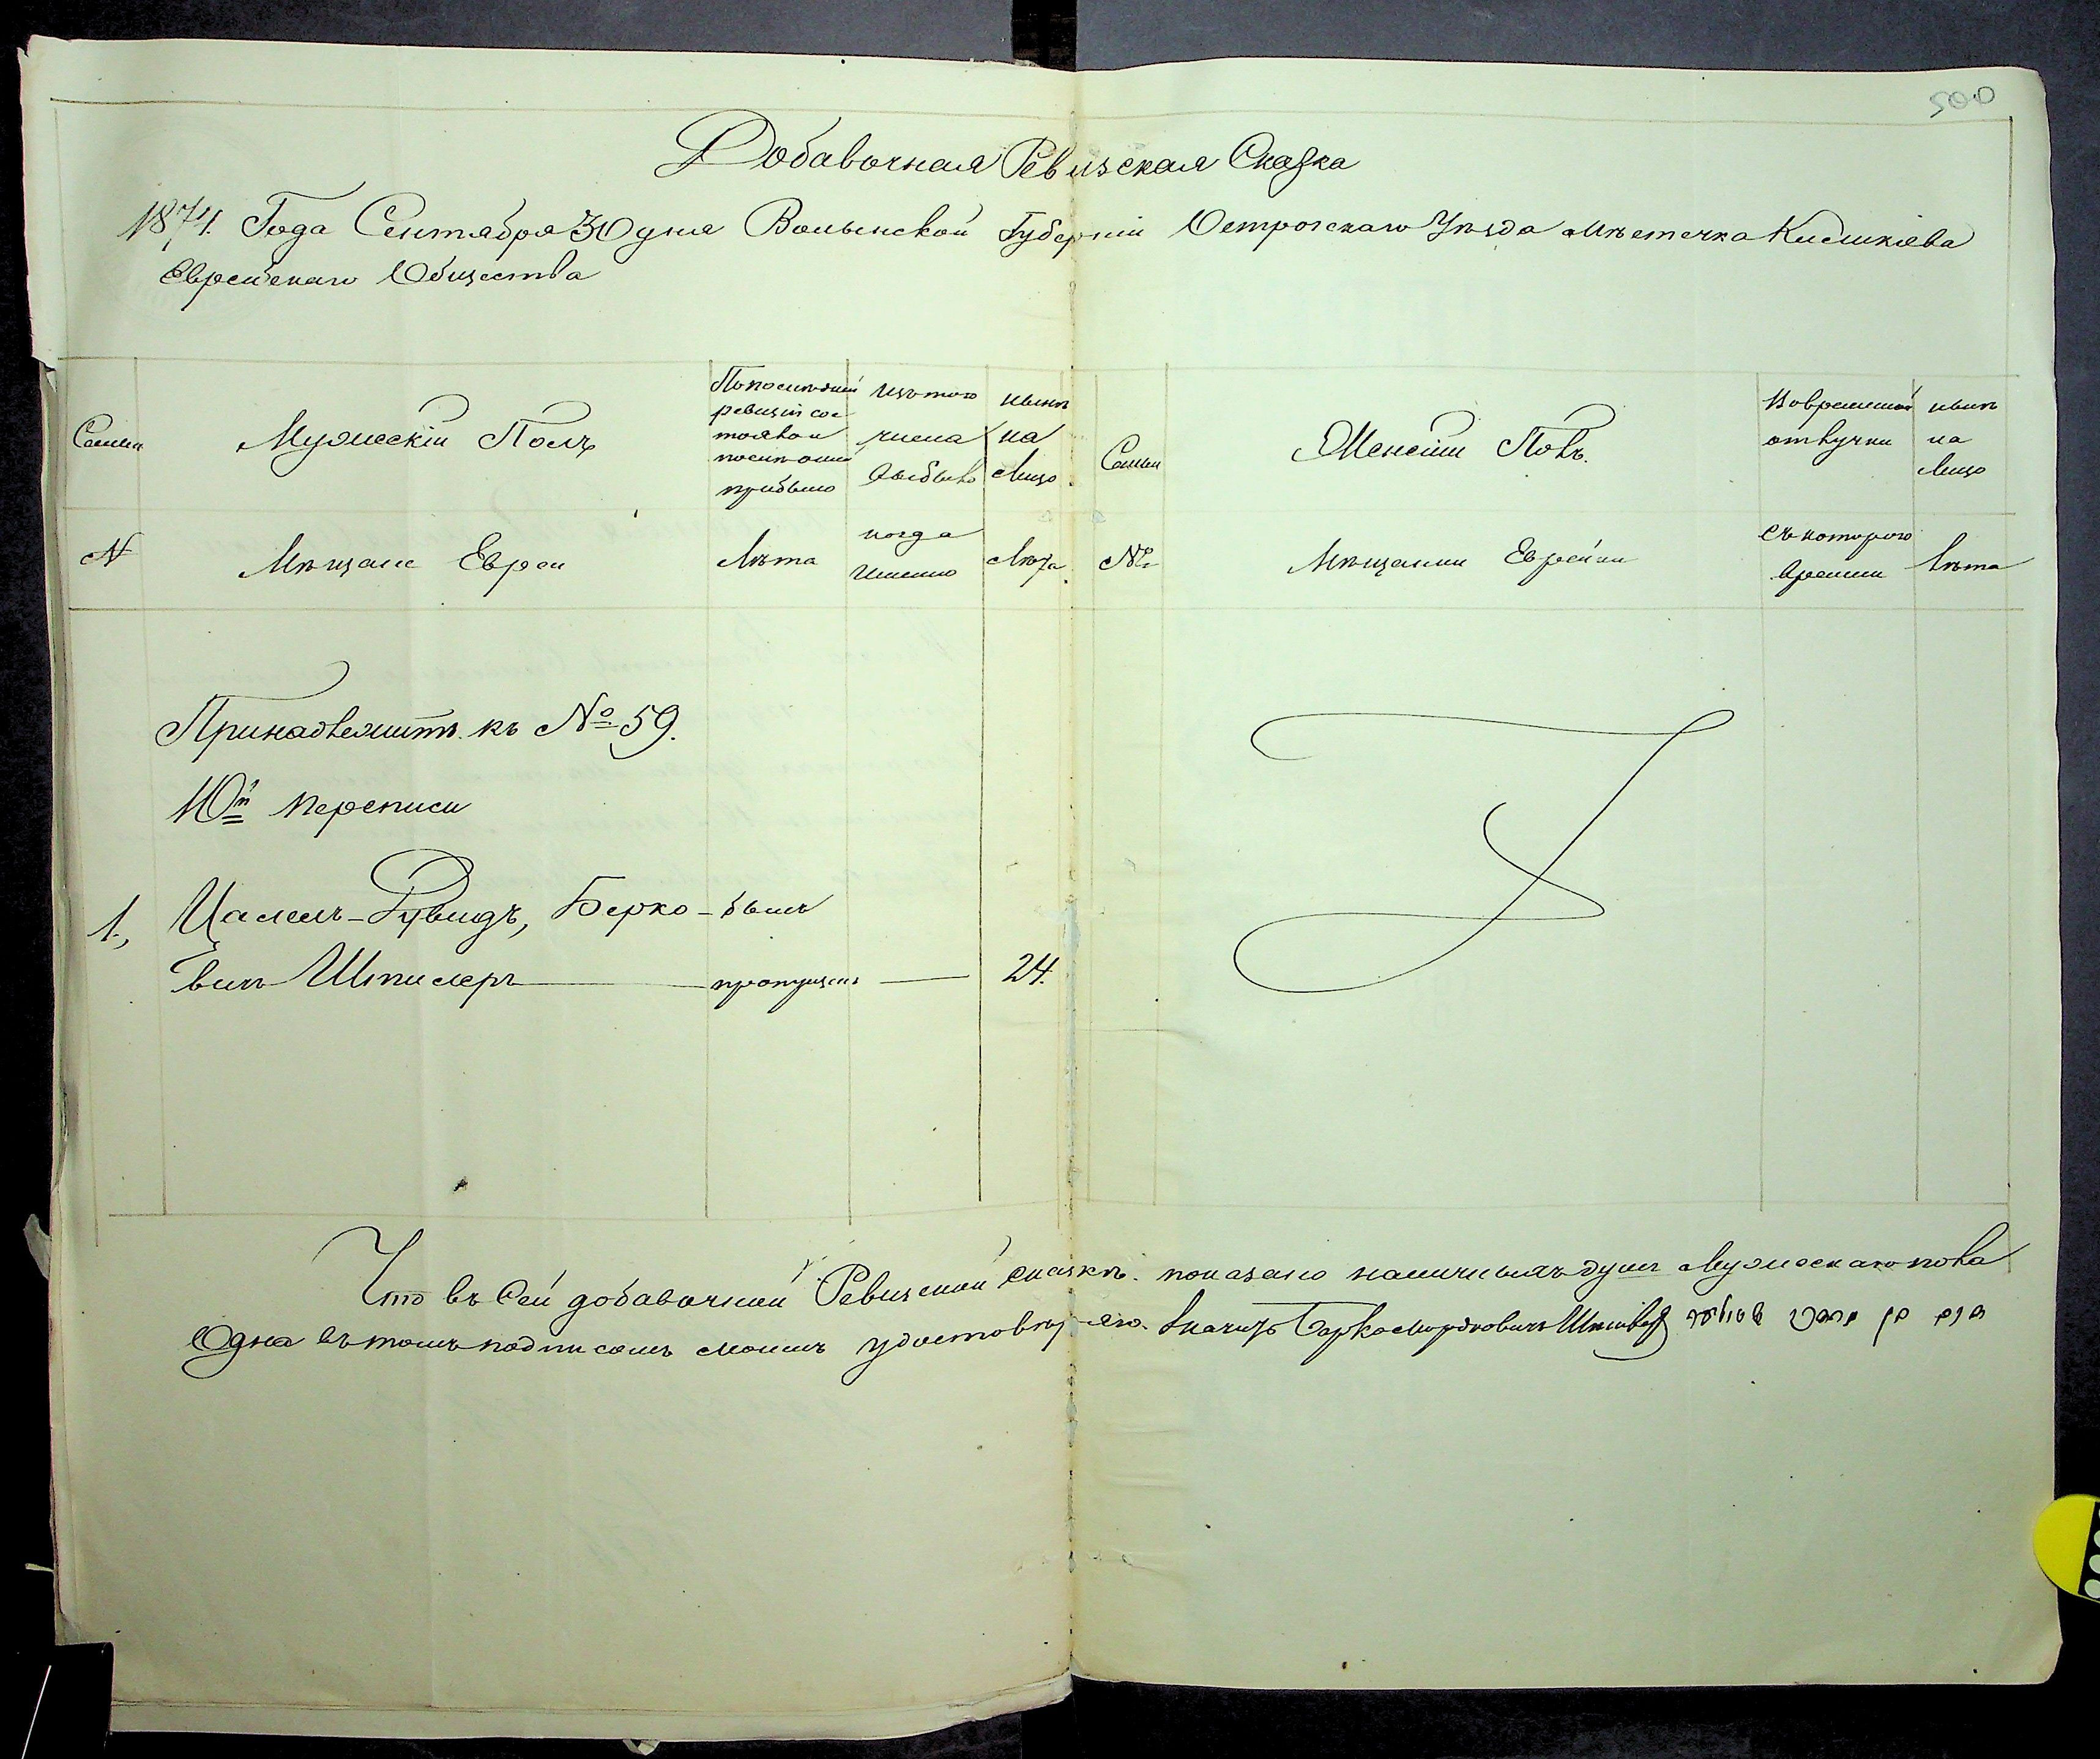 500
Добавочная Ревизская Сказка
1874. Года Сентября 30 дня Волынской Губерніи Острогскаго Уѣзда мѣстечка Киликіева
Еврейскаго Общества
Семьи
Мужескій Полъ
По последней ревизіи состояло и после оной прибыло
Изъ того числа выбыло
нынѣ на лицо
Семьи
Женскій Полъ.
Во временной отлучки
нынѣ на лицо
N
Мѣщане Евреи
Лѣта
когда Именно
Лѣта
№
Мѣщанки Еврейки
съ котораго времени
лѣта
Принадлежитъ къ № 59.
10й переписи
1., -Дувидъ, Берко- былъ
вичъ Шпилеръ пропущенъ 24.
Что въ Сей добавочной Ревизской сказкѣ показано наличныхъ душъ Мужескаго пола
Одна въ томъ подписомъ моимъ удостовѣряю. Берко Мордковичъ Шпилеръ